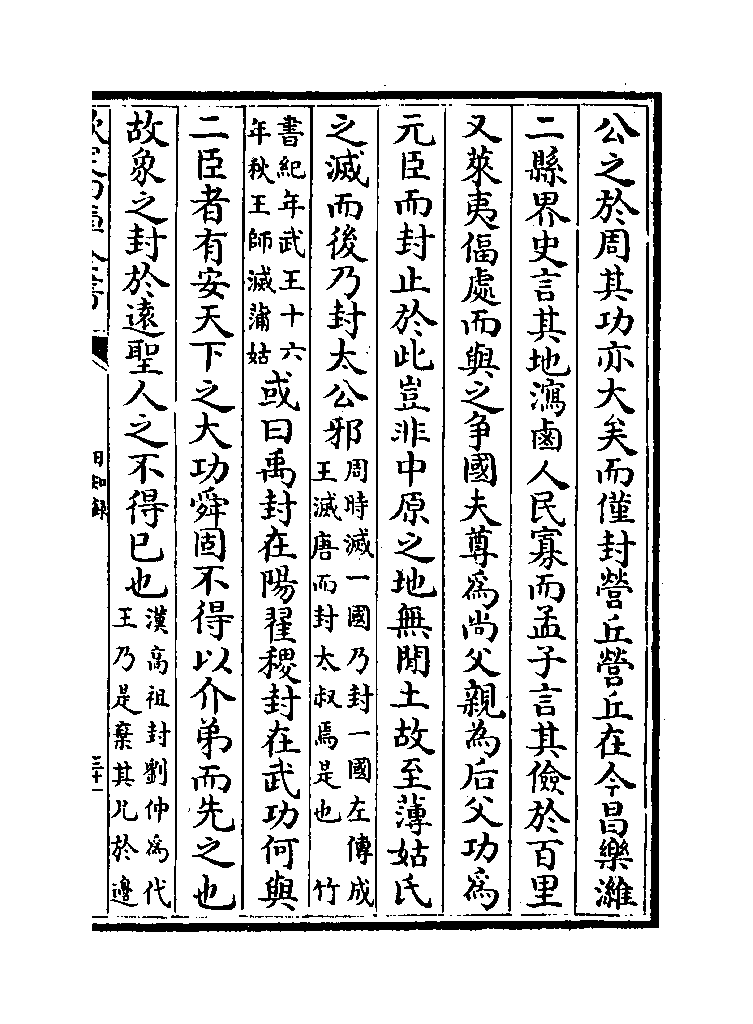 公之於周其功亦大矣而僅封營丘營丘在今昌樂濰
二縣界史言其地瀉鹵人民寡而孟子言其儉於百里
又萊夷偪處而與之争國夫尊爲尚父親為后父功爲
元臣而封止於此豈非中原之地無閒土故至薄姑氏
之滅而後乃封太公邪周時滅一國乃封一國左傳成王滅唐而封太叔焉是也 竹
書紀年武王十六年秋王師滅蒲姑或曰禹封在陽翟稷封在武功何與
二臣者有安天下之大功舜固不得以介弟而先之也
故象之封於逺聖人之不得已也漢高祖封劉仲爲代王乃是棄其兄於邊
日知錄
三十一